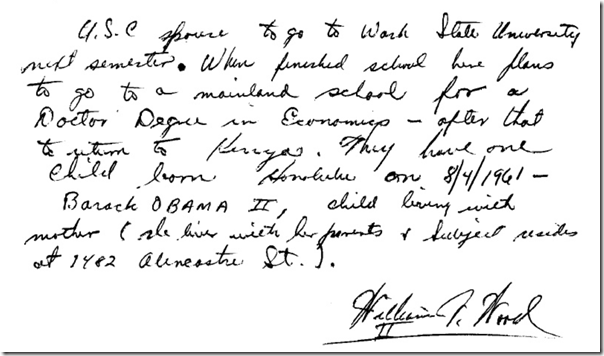 U.S.C spouse to go to Wash State University
next semester. When finished school here plans
to go to a mainland school for a
Doctor Degree in Economics – after that
to return to Kenya. They have one
child born Honolulu on 8/4/1961 –
Barack OBAMA II, child living with
mother (she lives with her parents & subject resides
at 1482 Alencastre St.).
William T. Wood
II